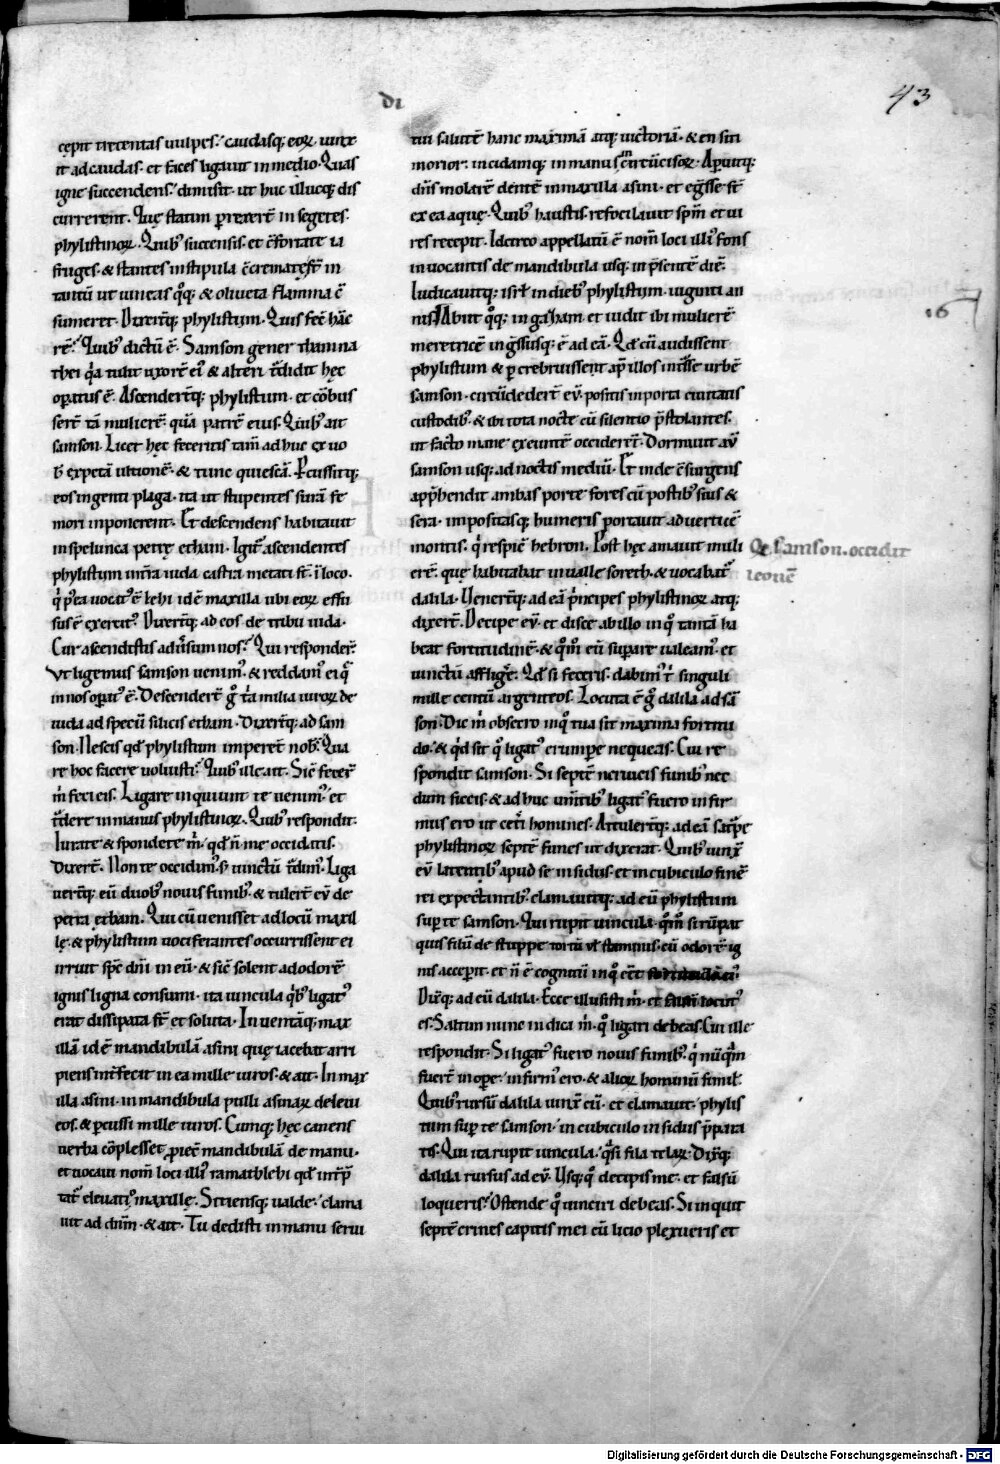 di
43
cępit trecentas uulpes. caudasq; eoꝝ iunx
it ad caudas. et faces ligauit in medio. Quas
igne succendens. dimisit. ut huc illucq; dis
currerent. Quę statim ꝑrexer̄ in segetes
phylistinoꝝ. Quib; succensis. et c̄portate iā
fruges. & stantes in stipula c̄crematę s̄t in
tantū ut uineas q̊q; & oliueta flamma c̄
sumeret. Dixer̄tq; phylistiim. Quis fec̄ hāc
rē. Quib; dictū ē. Samson gener thamna
thei q̇a tulit uxorē ei᷒ & alteri t̄didit hęc
oꝑatus ē. Ascender̄tq; phylistiim. et cōbus
ser̄t tā mulierē. quā patrē eius. Quib; ait
samson. Licet hęc feceritis tam̄ adhuc ex uo
b̄ expetā ultionē. & tunc quiescā. Ꝑcussitq;
eos ingenti plaga. ita ut stupentes surā fe
mori inponerent. Et descendens habitauit
in spelunca petrę etham. Igit᷑ ascendentes
phylistiim in t̄ra iuda castra metati s̄t. ī loco.
q̇ p̄ea uocat᷒ ē lehi id ē maxilla ubi eoꝝ effu
sus ē exercit᷒. Dixer̄tq; ad eos de tribu iuda.
Cur ascendistis adūsum nos. Qui responder̄
Vt ligemus samson uenim᷒. & reddam᷒ ei q̄
in nos oꝑat᷒ ē. Descender̄ g̊ ṫa milia uiroꝝ de
iuda ad specū silicis etham. Dixer̄tq; ad sam
son. Nescis qd̄ phylistiim imperēt nob̄. Qua
re hoc facere uoluisti. Quib; ille ait. Sic̄ fecer̄
m̄ feci eis. Ligare inquiunt te uenim᷒. et
t̄dere in manus phylistinoꝝ. Quib; respondit.
Iurate & spondete m̄. qd̄ n̄ me occiditis.
Dixer̄. Non te occidim᷒. s; uinctū t̄dim᷒. Liga
uer̄tq; eū duob; nouis funib; & tuler̄t eū de
petra etham. Qui cū uenisset ad locū maxil
lę. & phylistiim uociferantes occurrissent ei
irruit sp̄c dn̄i in eū. & sic̄ solent ad odorē
ignis ligna consumi. ita uincula q̇b; ligat᷒
erat dissipata s̄t et soluta. Inuentāq; max
illā id ē mandibulā asini quę iacebat arri
piens int̄fecit in ea mille uiros. & ait. In max
illa asini. in mandibula pulli asinaꝝ deleui
eos. & ꝑcussi mille uiros. Cumq; hęc canens
uerba cōplesset. ꝓiec̄ mandibulā de manu.
et uocauit nom̄ loci illi᷒ ramathlehi qd̄ int̄p̄
tat᷑ eleuatio maxillę. Sitiensq; ualde. clama
uit ad dn̄m. & ait. Tu dedisti in manu serui
tui salutē hanc maximā atq; uictoriā. & en siti
morior. incidamq; in manus circūcisoꝝ. Aꝑuitq;
dn̄s molarē dentē in maxilla asini. et eg̊sse s̄t
ex ea aque. Quib; haustis refocilauit sp̄m et ui
res recepit. Idcirco appellatū ē nom̄ loci illi᷒ fons
inuocantis de mandibula usq; in p̄sentē diē.
Iudicauitq; isrl̄ in dieb; phylistiim. uiginti an
nis. Abiit q̊q; in gazham. et uidit ibi mulierē
meretricē ing̊ssusq; ē ad eā. Qd̄ cū audissent
phylistiim & ꝑcrebruissent ap̄ illos int̄sse urbē
samson. circūdeder̄t eū positis in porta ciuitatis
custodib; & ibi tota nocte cū silentio p̄stolantes.
ut facto mane exeuntē occiderēt. Dormiuit aū
samson usq; ad noctis mediū. Et inde c̄surgens
app̄hendit ambas porte fores cū postib; suis &
sera. impositasq; humeris portauit ad uerticē
montis. q̇ respic̄ hebron. Post hęc amauit muli
erē. quę habitabat in ualle soreth. & uocabat᷑
dalila. Uener̄tq; ad eā ṗncipes phylistinoꝝ atq;
dixer̄t. Decipe eū. et disce ab illo in q̊ tantā ha
beat fortitudinē. & q̊m̊ eū suꝑare ualeam᷒. et
uinctū affligē. Qd̄ si feceris. dabim᷒ t̄ singuli
mille centū argenteos. Locuta ē g̊ dalila ad sā
son. Dic m̄ obsecro in q̊ tua sit maxima fortitu
do. & q̇d sit q̊ ligat᷒ erumꝑe nequeas. Cui re
spondit samson. Si septē neruicis funib; nec
dum siccis. & adhuc umētib; ligat᷒ fuero infir
mus ero ut cet̄i homines. Attuler̄tq; ad eā sat̄pe
phylistinoꝝ septē funes ut dixerat. Quib; uinx̄
eū latentib; apud se insidiis. et in cubiculo finē
rei expectantib;. clamauitq; ad eū phylistiim
suꝑ te samson. Qui rupit uincula. q̊m̊ si rūpat
quis filū de stuppe tortū ul̄ stamini&s. cū odorē ig
nis acceꝑit. et n̄ ē cognitū in q̊ eēt fortitudo ei᷒.
Dix̄q; ad eū dalila. Ecce illusisti m̄. et falsū locut᷒
es. Saltim nunc indica m̄. q̊ ligari debeas. Cui ille
respondit. Si ligat᷒ fuero nouis funib;. q̇ nūq̄m
fuer̄t in oꝑe. infirm᷒ ero. & alioꝝ hominū simil̄.
Quib; rursū dalila uinx̄ eū. et clamauit. phylis
tiim suꝑ te samson. in cubiculo insidiis p̄para
tis. Qui ita rupit uincula. q̄si fila telaꝝ. Dix̄q;
dalila rursus ad eū. Usq; q̊ decipis me. et falsū
loqueris. Ostende q̊ uinciri debeas. Si inquit
septē crines capitis mei cū licio plexueris et
16
Qd̄ samson. occidit
leonē
Digitalisierung gefördert durch die Deutsche Forschungsgemeinschaft - DFG